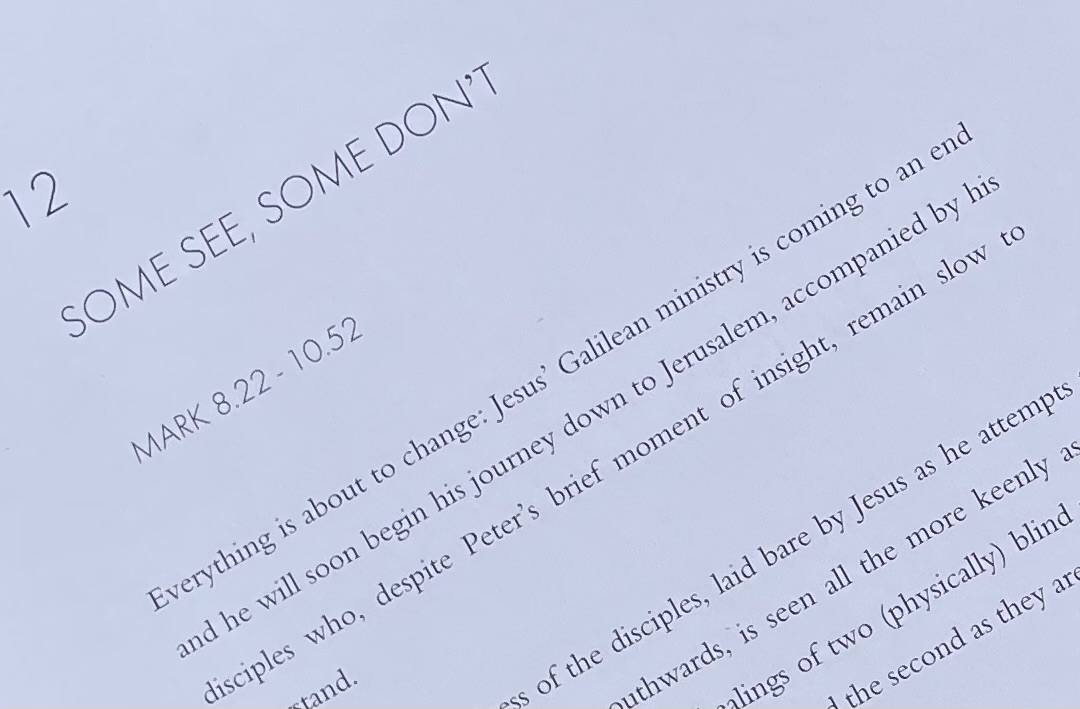 12
SOME SEE, SOME DON'T
MARK 8.22 - 10.52
Everything is about to change: Jesus' Galilean ministry is coming to an end
and he will soon begin his journey down to Jerusalem, accompanied by his
disciples who, despite Peter's brief moment of insight, remain slow to
of the disciples, laid bare by Jesus as he attempts
is seen all the more keenly as
of two (physically) blind
the second as they are